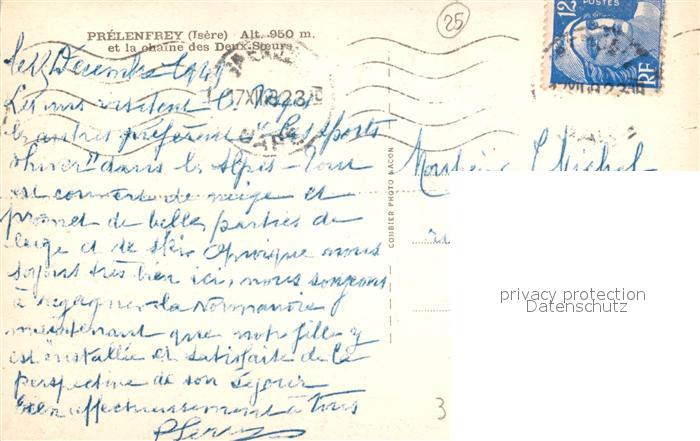 25
PRÉLENFREY (Isère) Alt. 950 m.
et la chaîne des Deux-Sœurs
12F
POSTES
RF
le 12 Décembre 1949
Les uns visitent
les autres préfèrent "les sports
d'hiver" dans les Alpes - Tout
est couvert de neige et
promet de belles parties de
luge et de ski. Quoique nous
soyons très bien ici, nous songeons
à regagner la Normandie
maintenant que notre fille y
est installée et satisfaite de la
perspective de son séjour
Bien affectueusement à tous
Monsieur Michel
COMBIER PHOTO MACON
privacy protection
Datenschutz
3